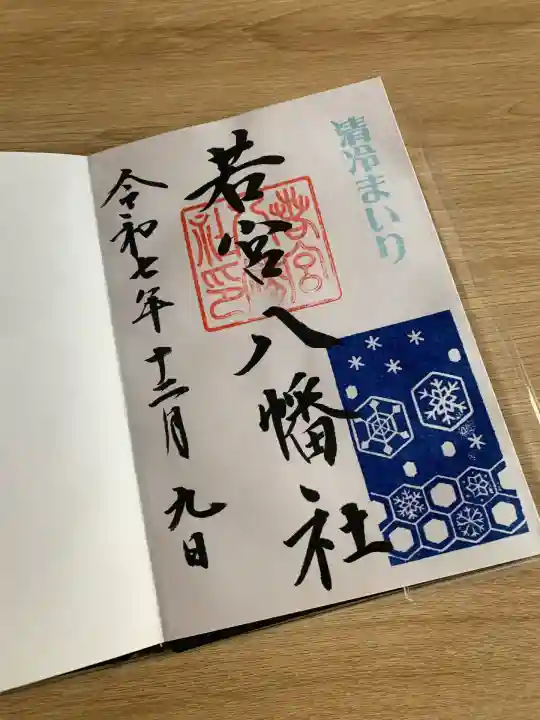 清冷まいり
若宮八幡社
若宮八幡社印
令和七年十二月九日